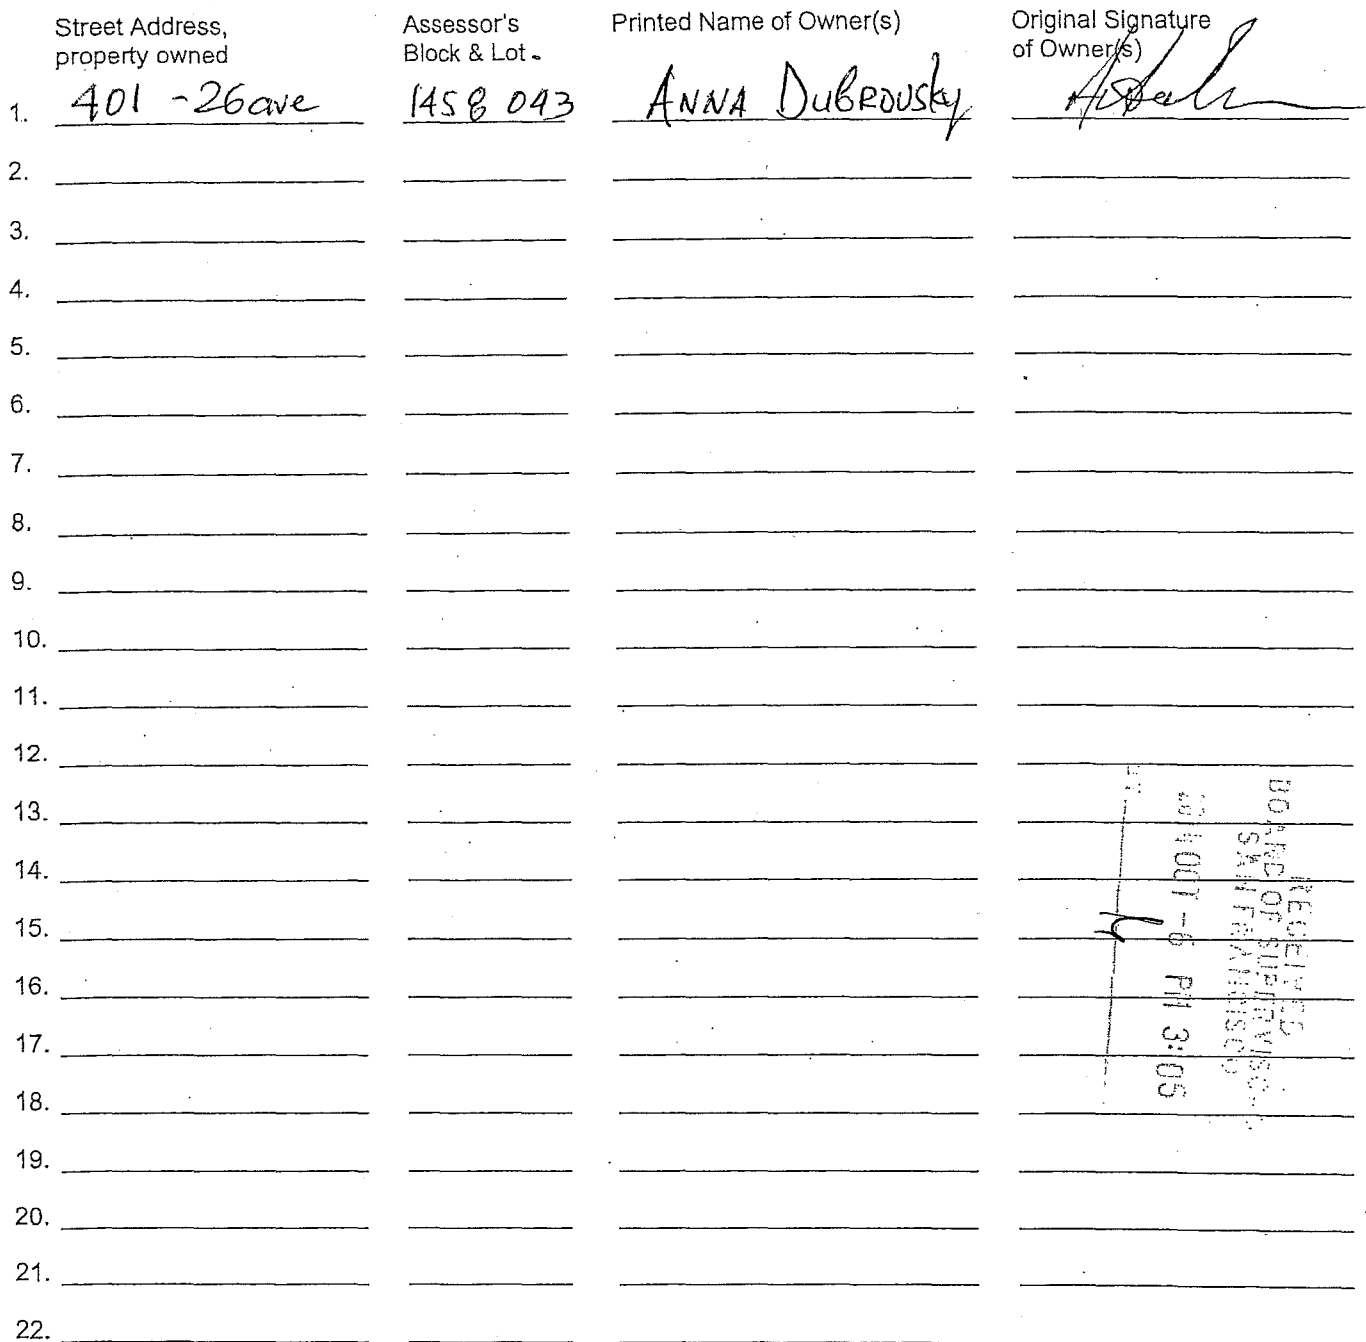 Street Address,
property owned
Assessor's
Block & Lot
Printed Name of Owner(s)
Original Signature
of Owner(s)
1. 401 - 26ave 1458 043 ANNA DUBROVSky
2.
3.
4.
5.
6.
7.
8.
9.
10.
11.
12.
13.
14.
15.
16.
17.
18.
19.
20.
21.
22.
RECEIVED
BOARD OF SUPERVISO
SAN FRANCISCO
OCT -6 PM 3:05